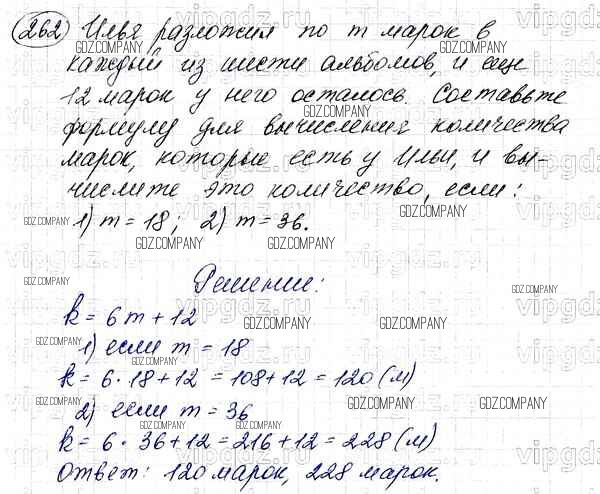 262) Илья разложил по m марок в
каждый из шести альбомов, и еще
12 марок у него осталось. Составьте
формулу для вычисления количества
марок, которые есть у Ильи, и вы-
числите это количество, если:
1) m = 18; 2) m = 36.
Решение:
k = 6m + 12
1) если m = 18
k = 6 · 18 + 12 = 108 + 12 = 120 (м)
2) если m = 36
k = 6 · 36 + 12 = 216 + 12 = 228 (м)
Ответ: 120 марок, 228 марок.